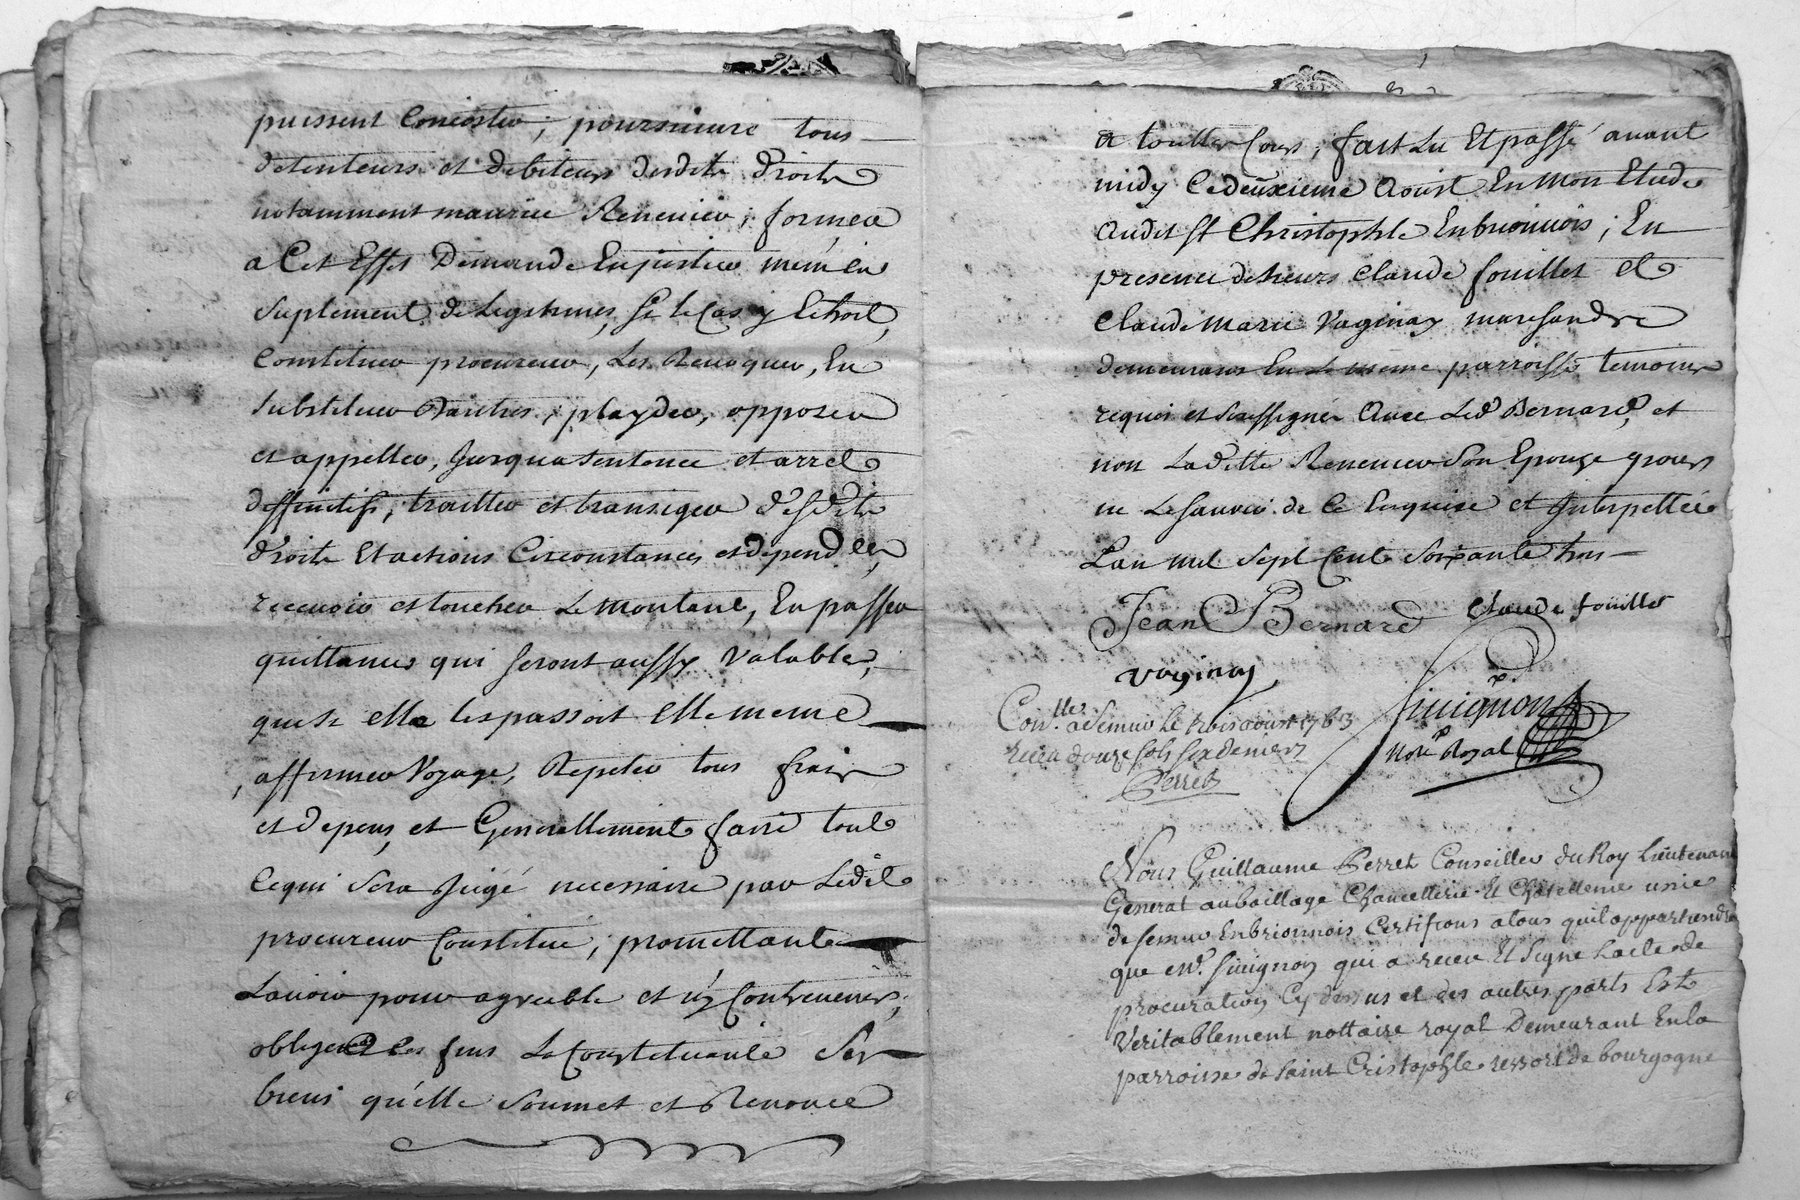 puissent Concister, poursuiure tous
detenteurs et debiteurs desdits Droits
notamment maurice Reneuier, former
a Cet Effet Demande En justice meme En
suplement de Legitimes, si le Cas y Echoit,
Constituer procureur, Les Reuoquer, En
substituer Dautres, playder, opposer
et appeller, Jusqua sentence et arret
deffinitifs, traitter et transiger desdits
droits Et actions Circonstances et dependces,
receuoir et toucher Le montant, En passer
quittances qui seront aussy Valable,
que si elle les passoit Elle meme
affirmer Voyage, Repeter tous frais
et depens, et Generallement faire tout
Ce qui sera Jugé necessaire par Ledit
procureur Constitué, promettant
Lauoir pour agreable et ny Contreuenir,
obligeant Les fins La Constituante Ses
biens qu'elle soumet et Renonce
a toutter Cours, fait Lu Et passé auant
midy Le deuxieme Aoust En Mon Etude
audit St Christophle En brionnois, En
presence de sieurs Claude fouillet et
Claude Marie Vaginay marchandre
demeurans En La meme parroisse temoins
requis et soussignés Auec Led. Bernard, et
non Laditte Reneuier son Epouze pour
ne Le sauoir de Ce Enquise et Interpellée
Lan mil sept Cent Soixante trois
Jean Bernard Claude fouillet
Vaginay
Sivignon
Notre Royal
Conlle. a Semur le trois aoust 1763
receu douze sols six deniers
Perret
Nous Guillaume Perret Conseiller du Roy Lieutenant
General au baillage Chancellerie Et Chatellenie unie
de Semur En brionnois Certifions a tous qu'il appartiendra
que me. Sivignon qui a receu Et signe Lacte de
procuration Cy dessus et des autres parts Est
Veritablement nottaire royal Demeurant En la
parroisse de Saint Cristophle ressort de bourgogne